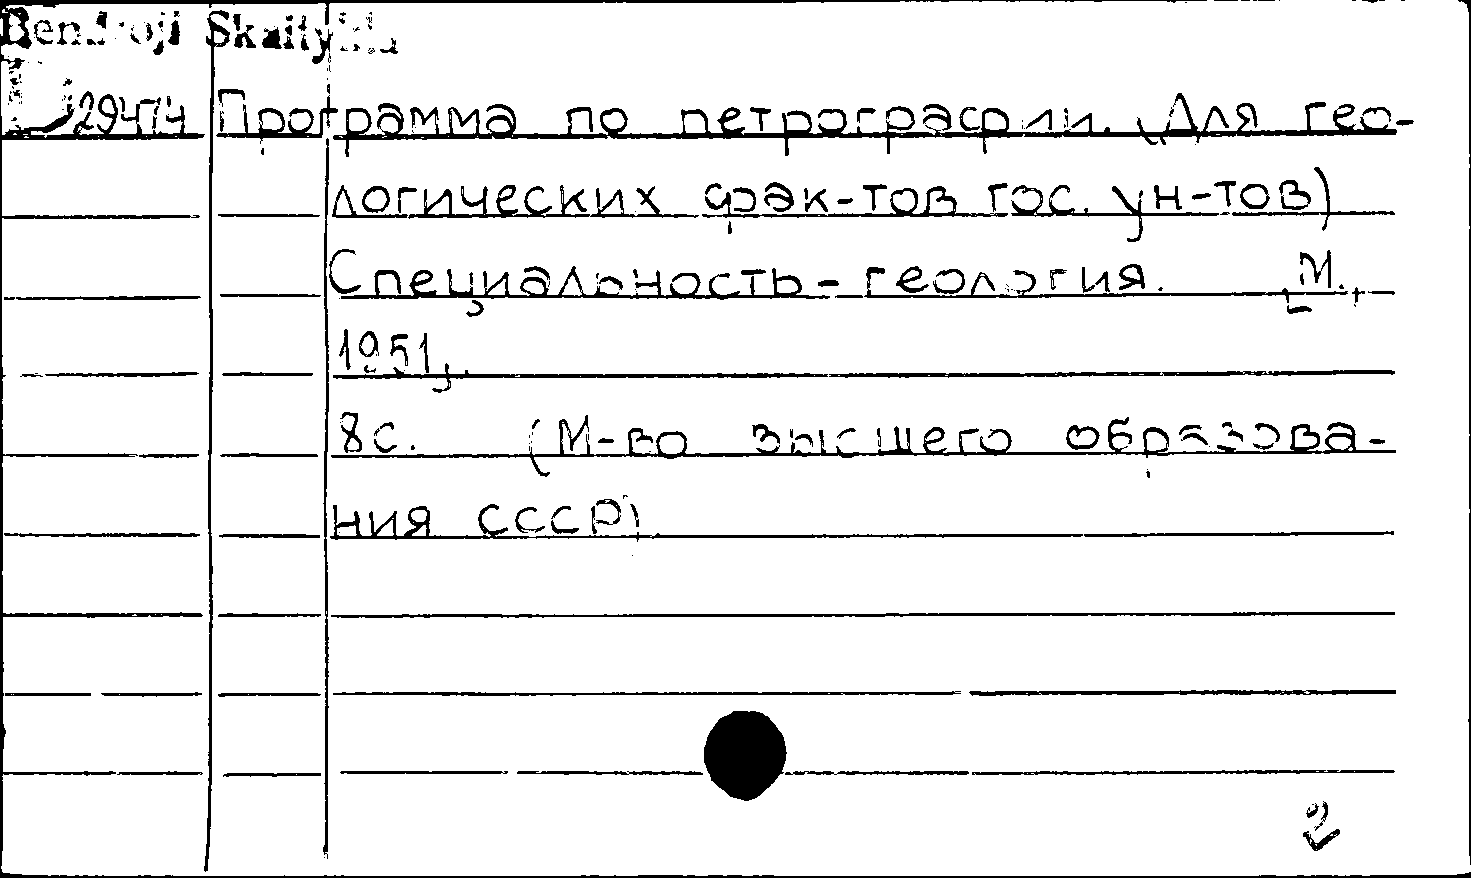 Bendroji Skaitykla
29474 Программа по петрографии. (Для гео-
логических фак-тов гос. ун-тов)
Специальность - геология. [М.,
1951].
8с. (М-во высшего образова-
ния СССР)
2